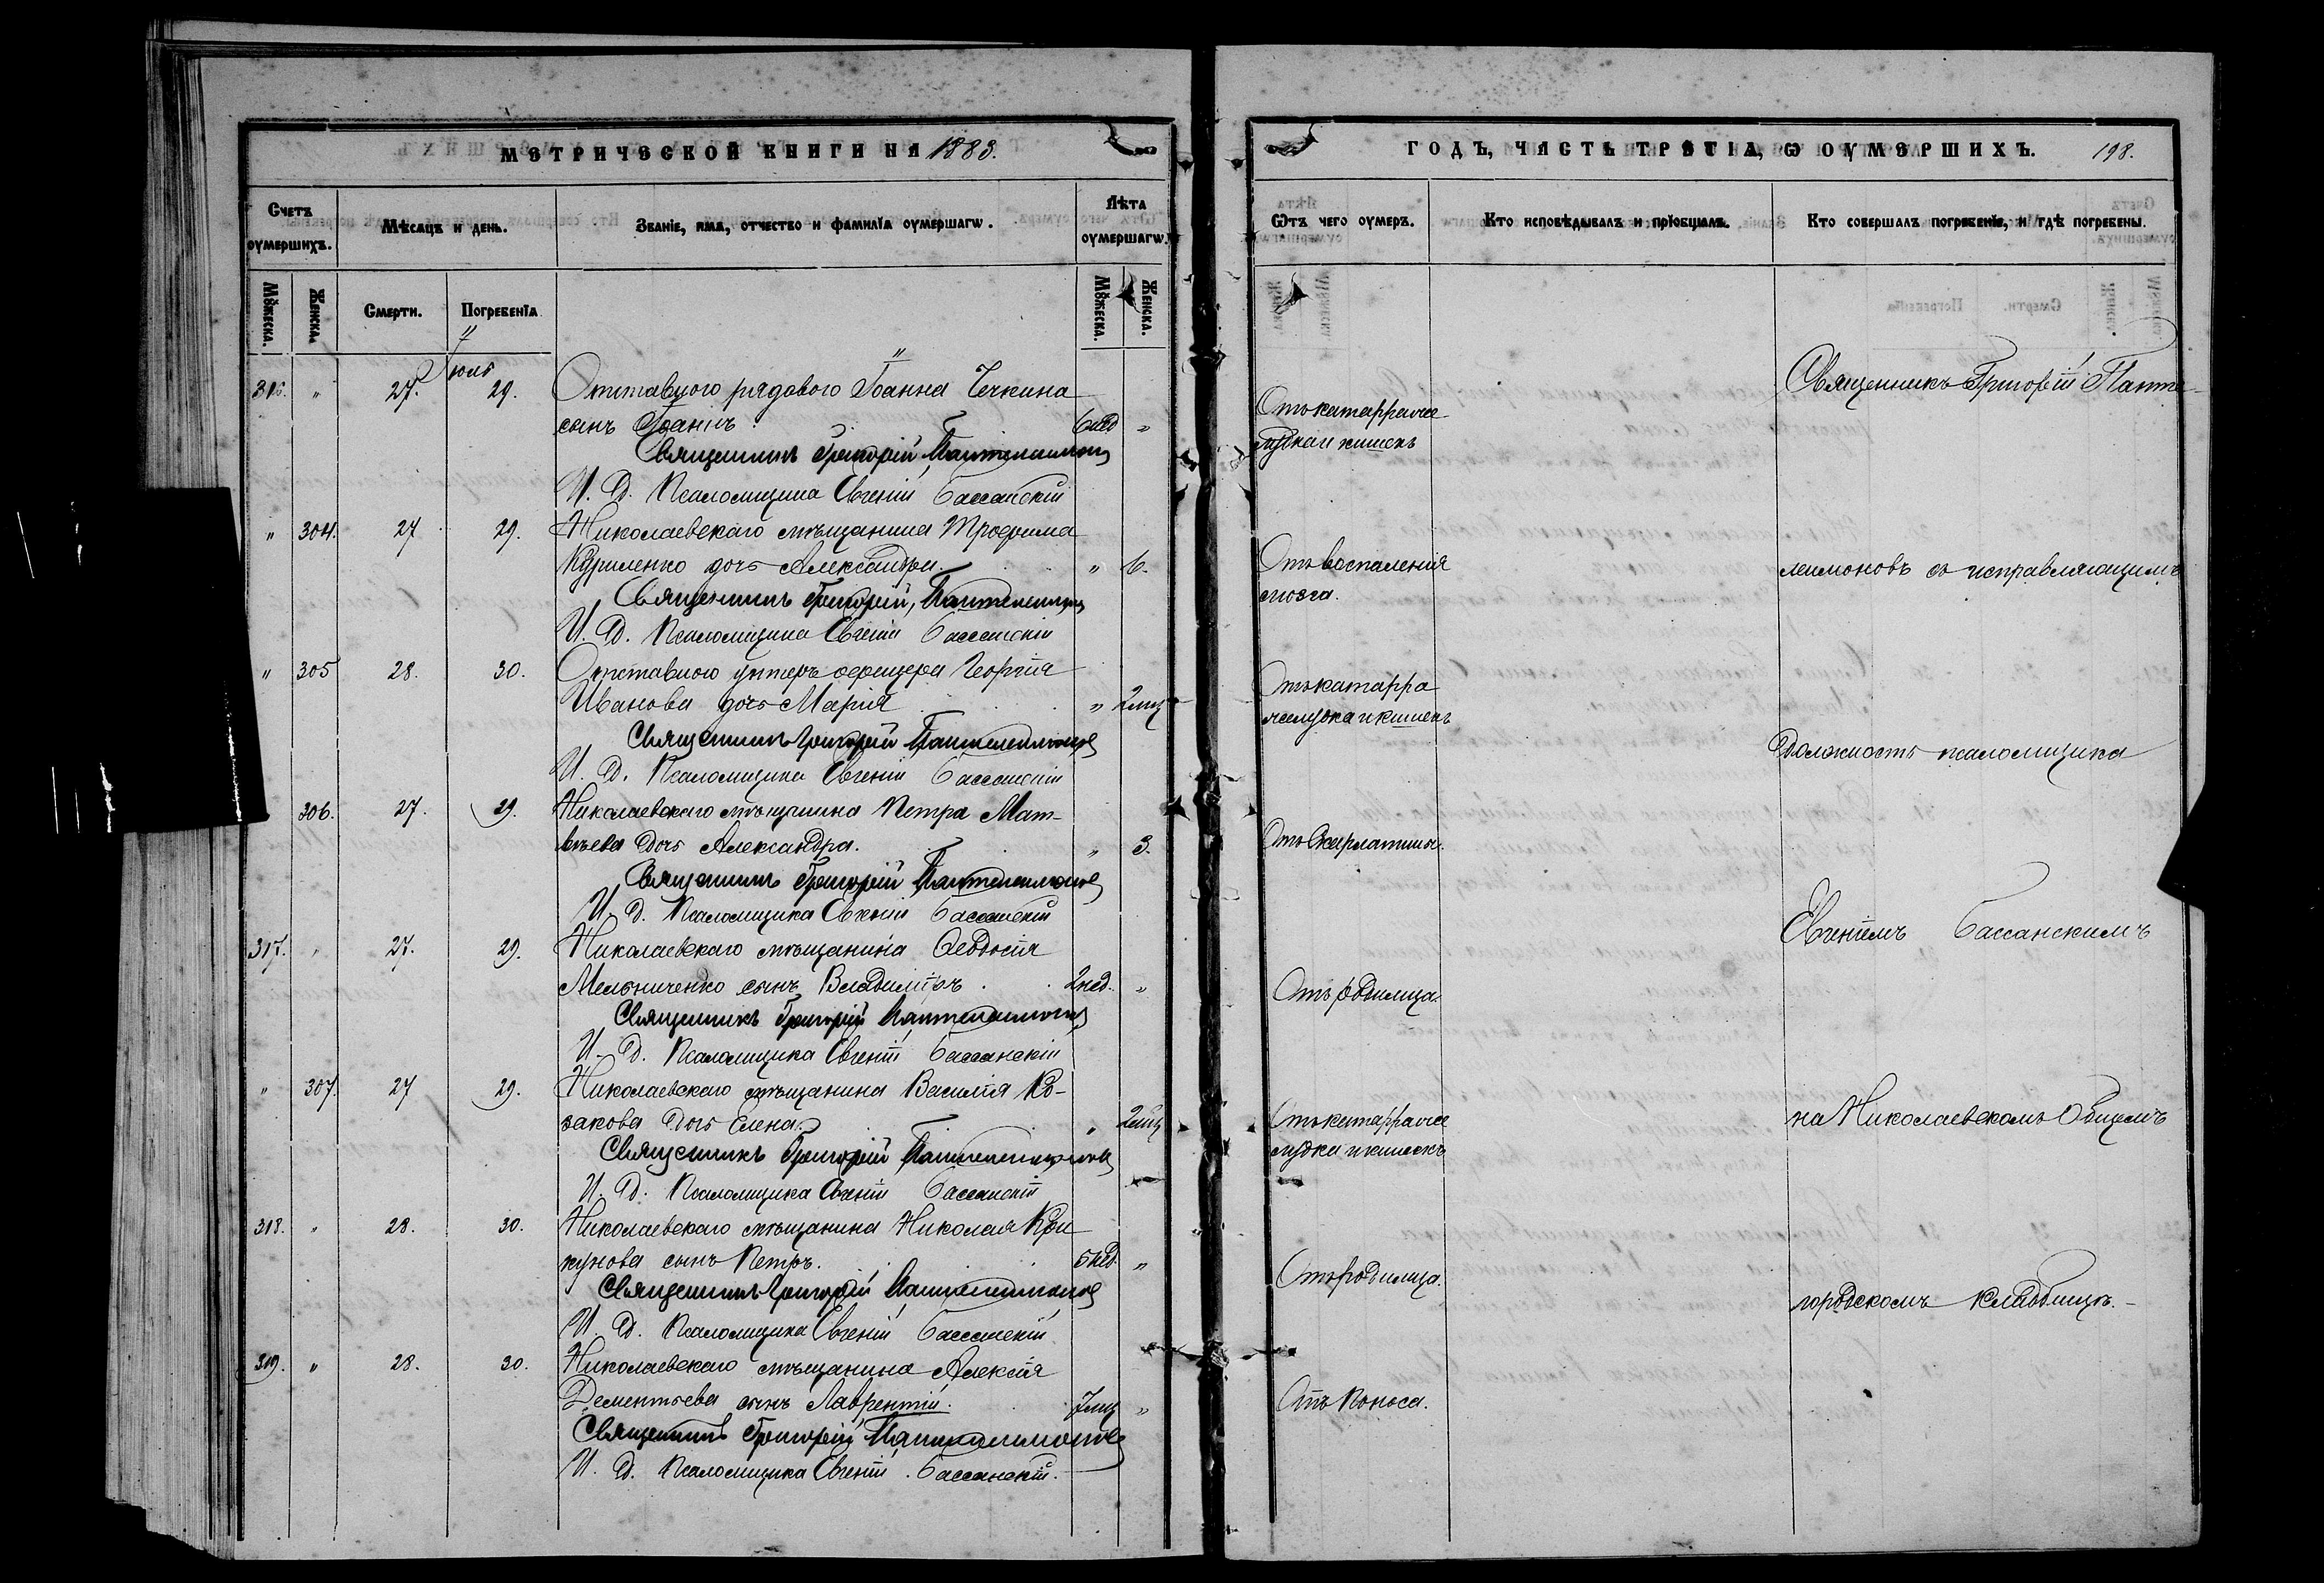 МЕТРИЧЕСКОЙ КНИГИ НА 1883.
Счетъ оумершихъ.
Мѣсяцъ и день.
Званіе, имя, отчество и фамилїа оумершагѡ.
Лѣта оумершагѡ.
Мꙋжеска.
Женска.
Смерти.
Погребенїа
Мꙋжеска.
Женска.
Іюль
316. " 27. 29. Отставного рядового Іоанна Чечкина
сынъ Іоаннъ. 6 нед "
Священникъ Григорій Пантелеимоновъ
И. Д. Псаломщика Евгеній Бассанскій
" 304. 27 29. Николаевскаго мѣщанина Трофима
Куриленко дочь Александра. " 6.
Священникъ Григорій Пантелеимоновъ
И. Д. Псаломщика Евгеній Бассанскій
" 305 28. 30. Отставного унтеръ офицера Георгія
Иванова дочь Марія " 2 мц
Священникъ Григорій Пантелеимоновъ
И. Д. Псаломщика Евгеній Бассанскій
306. 27. 29. Николаевскаго мѣщанина Петра Мат-
вѣева дочь Александра. " 3.
Священникъ Григорій Пантелеимоновъ
И. Д. Псаломщика Евгеній Бассанскій
317. " 27. 29. Николаевскаго мѣщанина Ѳеодосія
Мельниченко сынъ Владиміръ. 2 нед. "
Священникъ Григорій Пантелеимоновъ
И. Д. Псаломщика Евгеній Бассанскій
" 307. 27 29. Николаевскаго мѣщанина Василія Ко-
закова дочь Елена. " 2 мц
Священникъ Григорій Пантелеимоновъ
И. Д. Псаломщика Евгеній Бассанскій
318. " 28. 30. Николаевскаго мѣщанина Николая Кри
кунова сынъ Петръ. 5 нед. "
Священникъ Григорій Пантелеимоновъ
И. Д. Псаломщика Евгеній Бассанскій
319. " 28. 30. Николаевскаго мѣщанина Алексія
Дементьева сынъ Лаврентій. 7 мц "
Священникъ Григорій Пантелеимоновъ
И. Д. Псаломщика Евгеній Бассанскій.
ГОДЪ, ЧАСТЬ ТРЕТІА, Ѡ ОУМЕРШИХЪ. 198.
Ѿтъ чего оумеръ.
Кто исповѣдывалъ и прїобщалъ.
Кто совершалъ погребенїе, и гдѣ погребены.
Отъ катарра же-
лудка и кишекъ
Отъ воспаленія
мозга.
Отъ катарра
желудка и кишекъ
Отъ Скарлатины.
Отъ родимца.
Отъ катарра же
лудка и кишекъ
Отъ родимца.
Отъ Поноса.
Священникъ Григорій Панте-
леимоновъ съ исправляющимъ
Должность псаломщика
Евгеніемъ Бассанскимъ
на Николаевскомъ Общемъ
городскомъ кладбищѣ.-